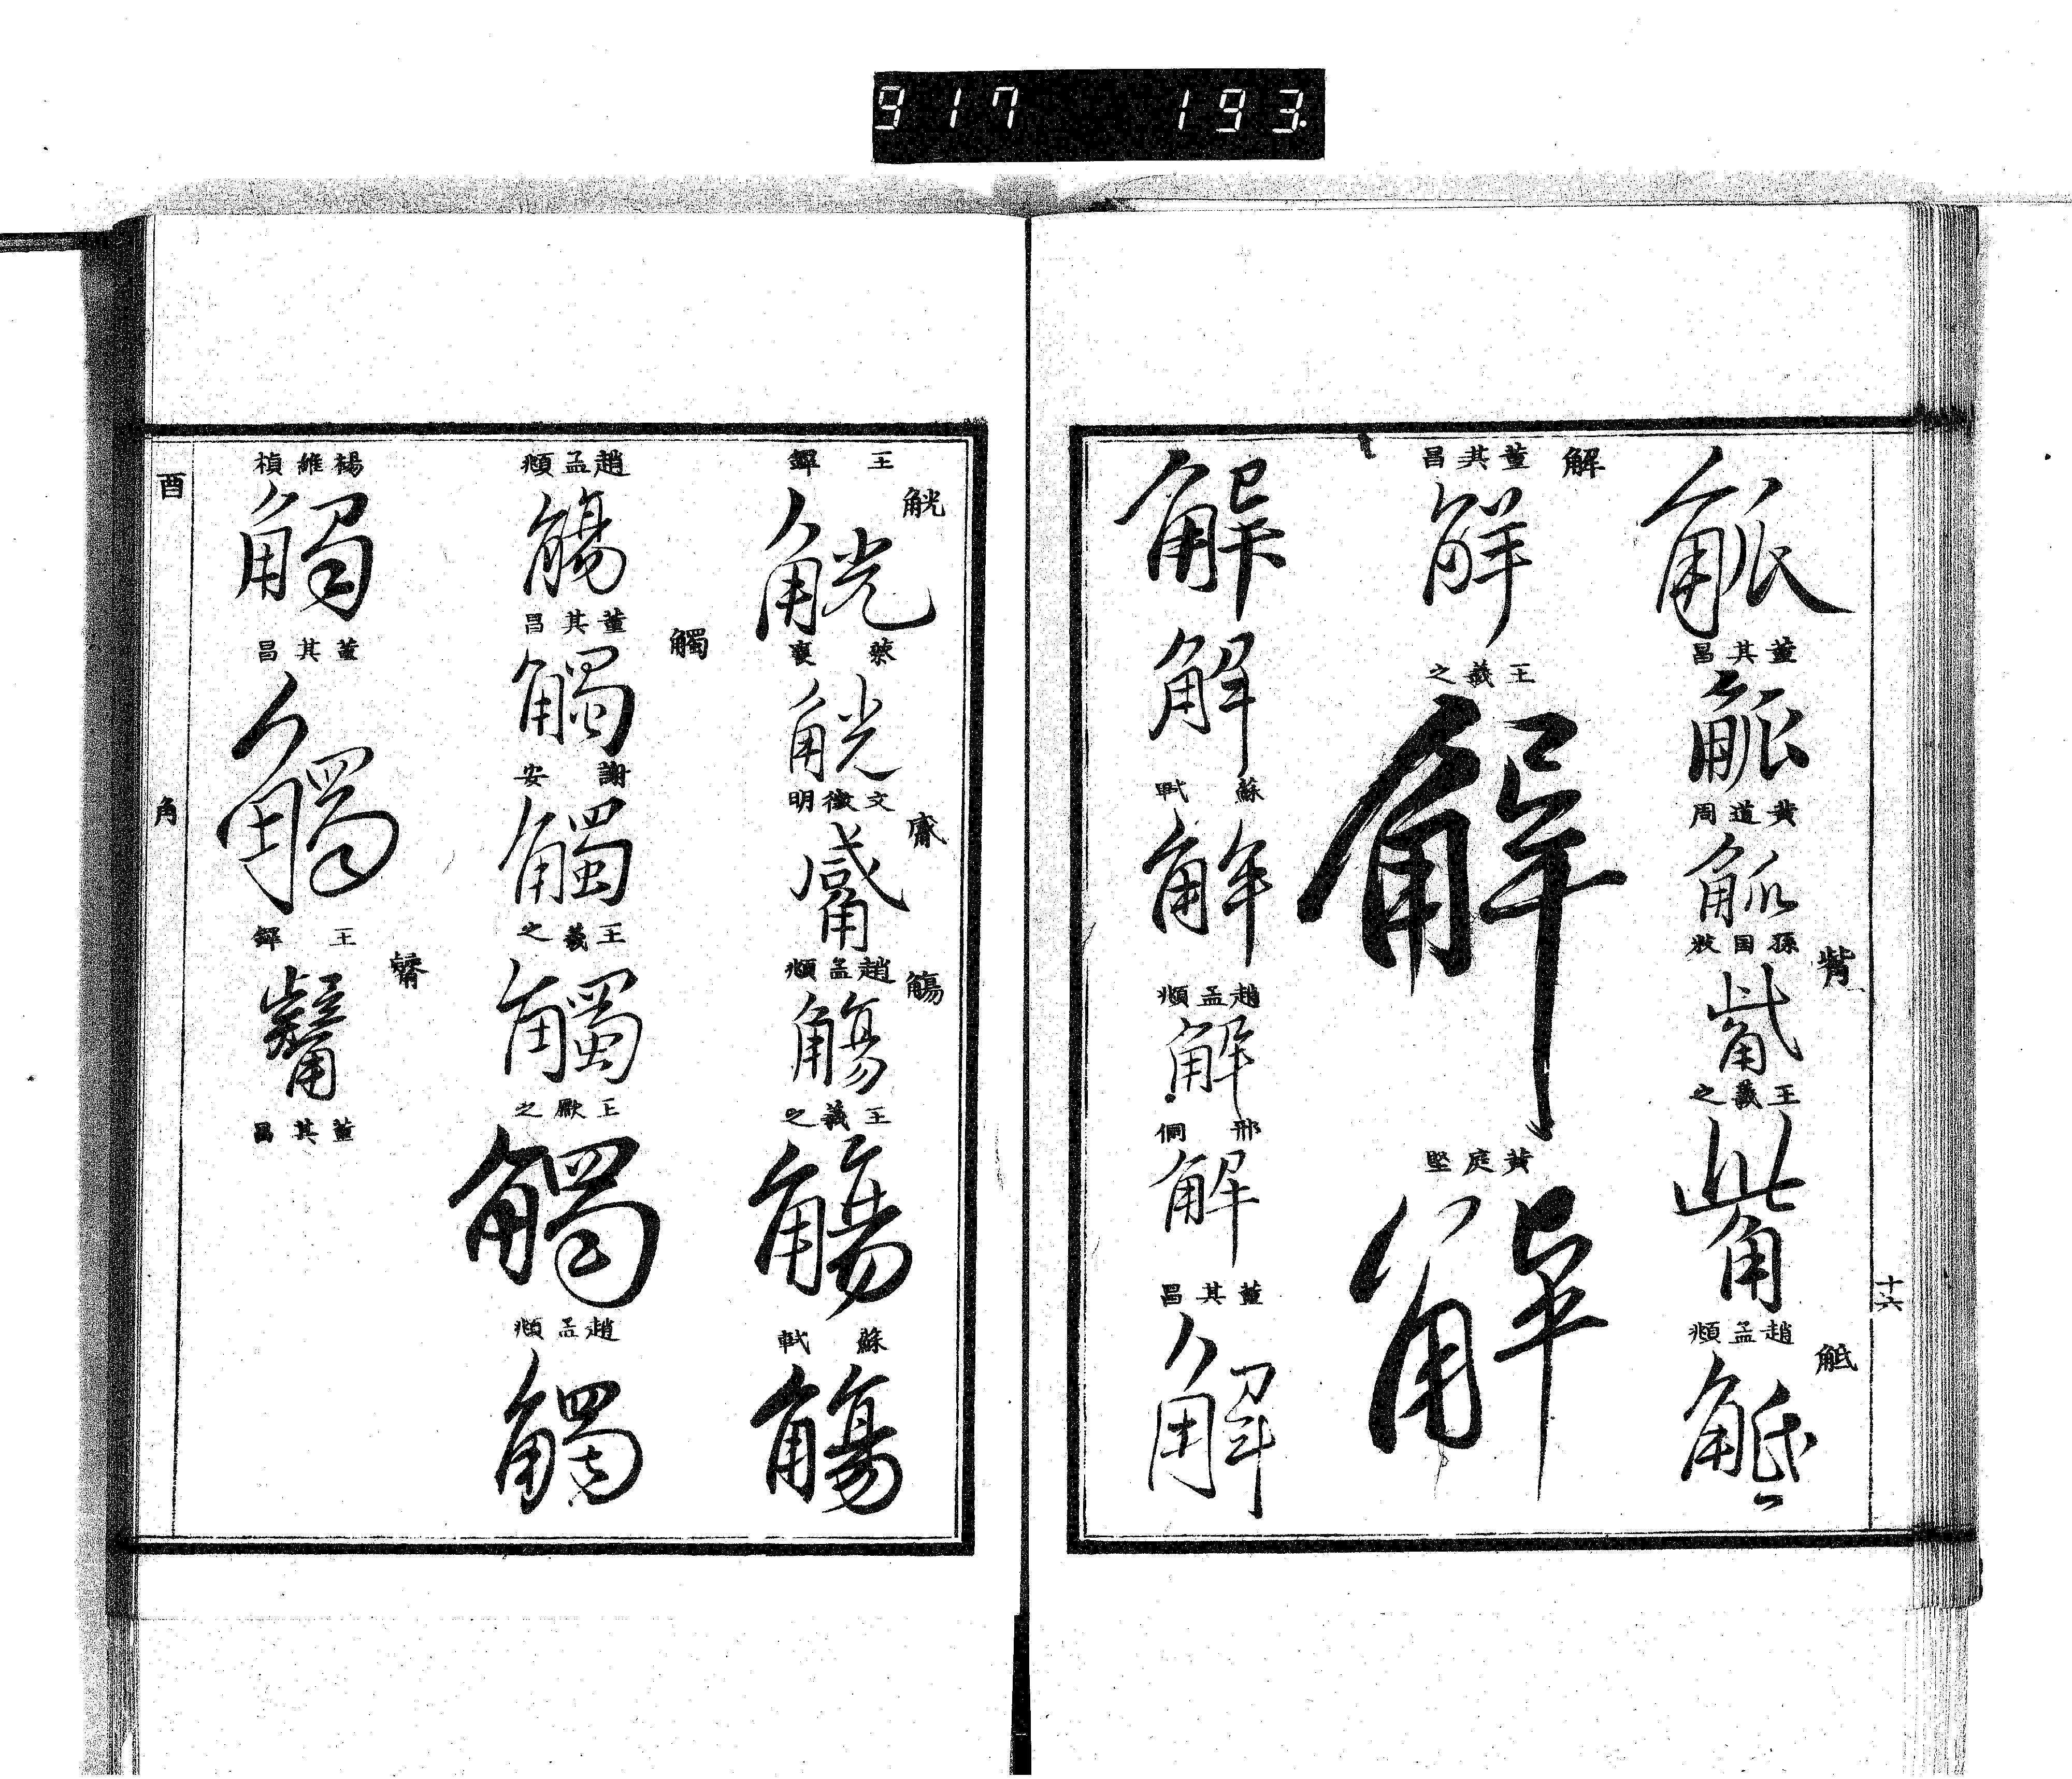 917 193.
觚
董其昌
觚
黄道周
觚
孫国敉
觜
觜
王羲之
觜
趙孟頫
觝
觝
十六
解
董其昌
解
王羲之
解
黄庭堅
解
解
解
蘇軾
解
趙孟頫
解
邢侗
解
董其昌
解
觥
王鐸
觥
蔡襄
觥
文徵明
觱
趙孟頫
觴
觴
王羲之
觴
蘇軾
觴
趙孟頫
觴
觸
董其昌
觸
謝安
觸
王羲之
觸
王厥之
觸
趙孟頫
觸
楊維楨
觸
董其昌
觸
王鐸
董其昌
酉
角